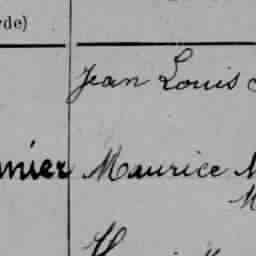 yde)
Jean Louis
nier Maurice M
M
H